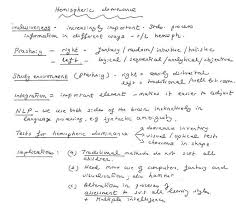 Hemispheric dominance
Inclusiveness - increasingly important. Indiv. process
information in different ways - r/l hemisph.
Prashnig - right - fantasy / random / intuitive / holistic
left - logical / sequential / analytical / objective
Study environment (Prashnig) - right = easily distracted
left = traditional / well-lit room.
Integration = important element - makes it easier to adjust
NLP - we use both sides of the brain instinctively in
language processing, eg syntactic ambiguity.
Tests for hemispheric dominance
dominance inventory
visual / optical tests
dancers in shape
Implications: (a) Traditional methods do not suit all
children.
(b) Need more use of computers, fantasy and
visualisation, also humour
(c) Alternation in process of
assessment to suit all learning styles
+ Multiple intelligence